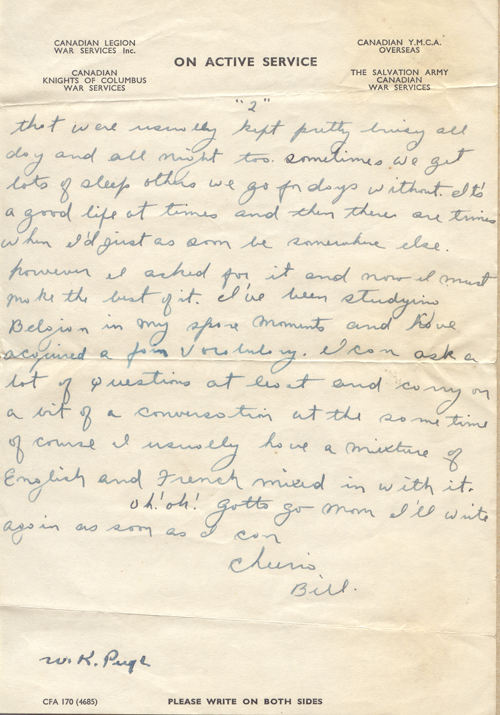 CANADIAN LEGION
WAR SERVICES Inc.
CANADIAN
KNIGHTS OF COLUMBUS
WAR SERVICES
ON ACTIVE SERVICE
CANADIAN Y.M.C.A.
OVERSEAS
THE SALVATION ARMY
CANADIAN
WAR SERVICES
"2"
that were usually kept pretty busy all
day and all night too. sometimes we get
lots of sleep others we go for days without. It's
a good life at times and then there are times
when I'd just as soon be somewhere else.
however I asked for it and now I must
make the best of it. I've been studying
Belgian in my spare moments and have
acquired a Vocabulary. I can ask a
lot of questions at least and carry on
a bit of a conversation at the same time
of course I usually have a mixture of
English and French mixed in with it.
oh! oh! gotta go Mom I'll write
again as soon as I can
Cheerio
Bill.
W.K. Pugh
CFA 170 (4685)
PLEASE WRITE ON BOTH SIDES